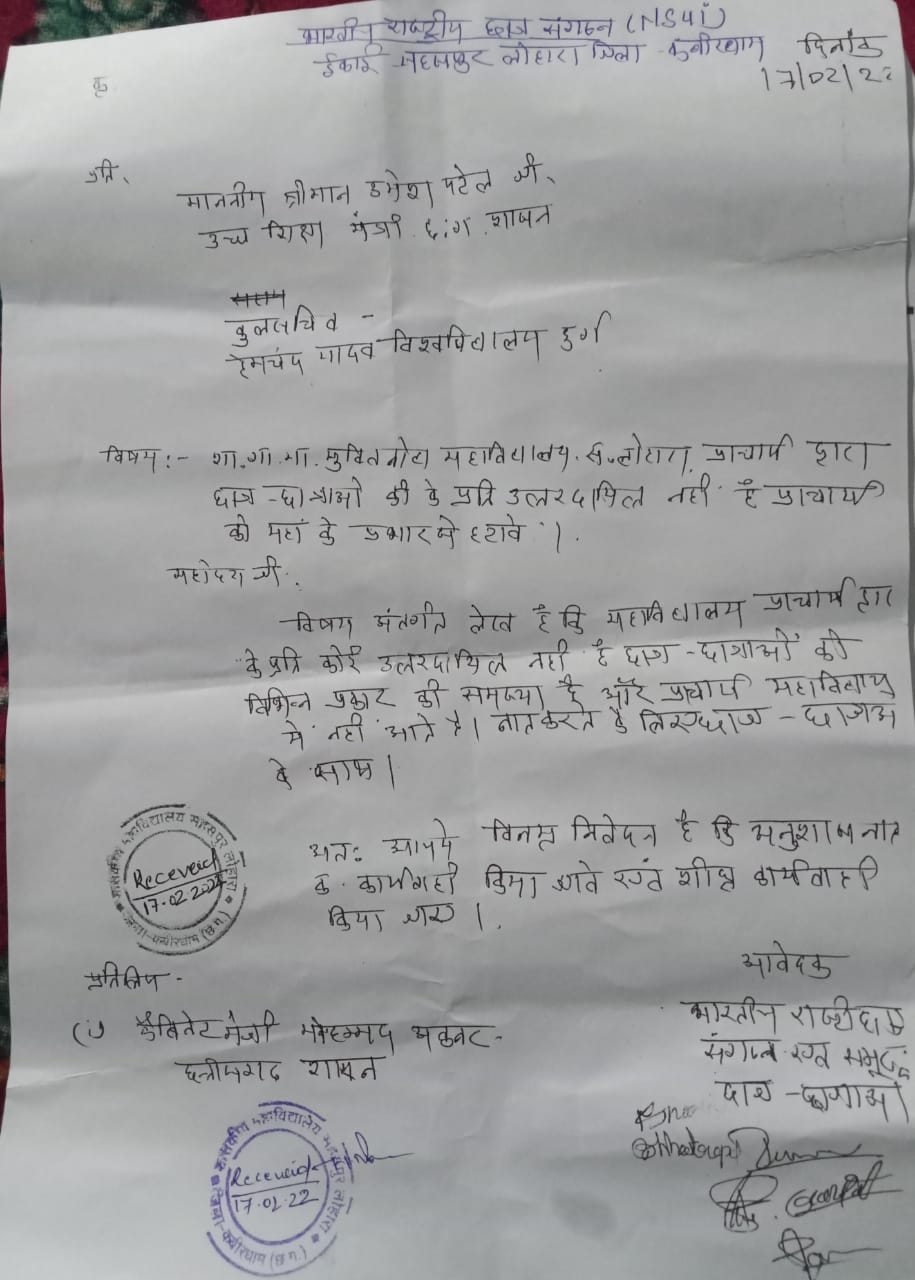 भारतीय राष्ट्रीय छात्र संगठन (NSUI)
ईकाई - सहसपुर लोहारा जिला - कबीरधाम
दिनांक
17/02/22
क्र
प्रति,
माननीय श्रीमान उमेश पटेल जी,
उच्च शिक्षा मंत्री छ:ग. शासन
कुलसचिव -
हेमचंद यादव विश्वविद्यालय दुर्ग
विषय :- शा. गा. मा. महाविद्यालय. स. लोहारा, प्राचार्य द्वारा
छात्र - छात्राओ की के प्रति उत्तरदायित्व नहीं है प्राचार्य
को यहां के प्रभार से हटावे ।.
महोदय जी.
विषय अंतर्गत लेख है कि महाविद्यालय प्राचार्य द्वारा
के प्रति कोई उत्तरदायित्व नहीं है छात्र - छात्राओं की
विभिन्न प्रकार की समस्या है और प्राचार्य महाविद्यालय
में नहीं आते है। छात्र - छात्राओ
के साथ।
अतः आपसे विनम्र निवेदन है कि
क. कार्यवाही किया जावे एवं शीघ्र कार्यवाही
किया जाए ।.
शासकीय महाविद्यालय सहसपुर लोहारा
Receveid
17.02.2022
जिला-कबीरधाम (छ.ग.)
प्रतिलिपि -
(1) केबिनेट मंत्री मोहम्मद अकबर -
छत्तीसगढ शासन
आवेदक
भारतीय राष्ट्रीय छात्र
संगठन एवं समूह
छात्र - छात्राओं
शासकीय महाविद्यालय सहसपुर लोहारा
Receveid
17.02.22
जिला-कबीरधाम (छ.ग.)